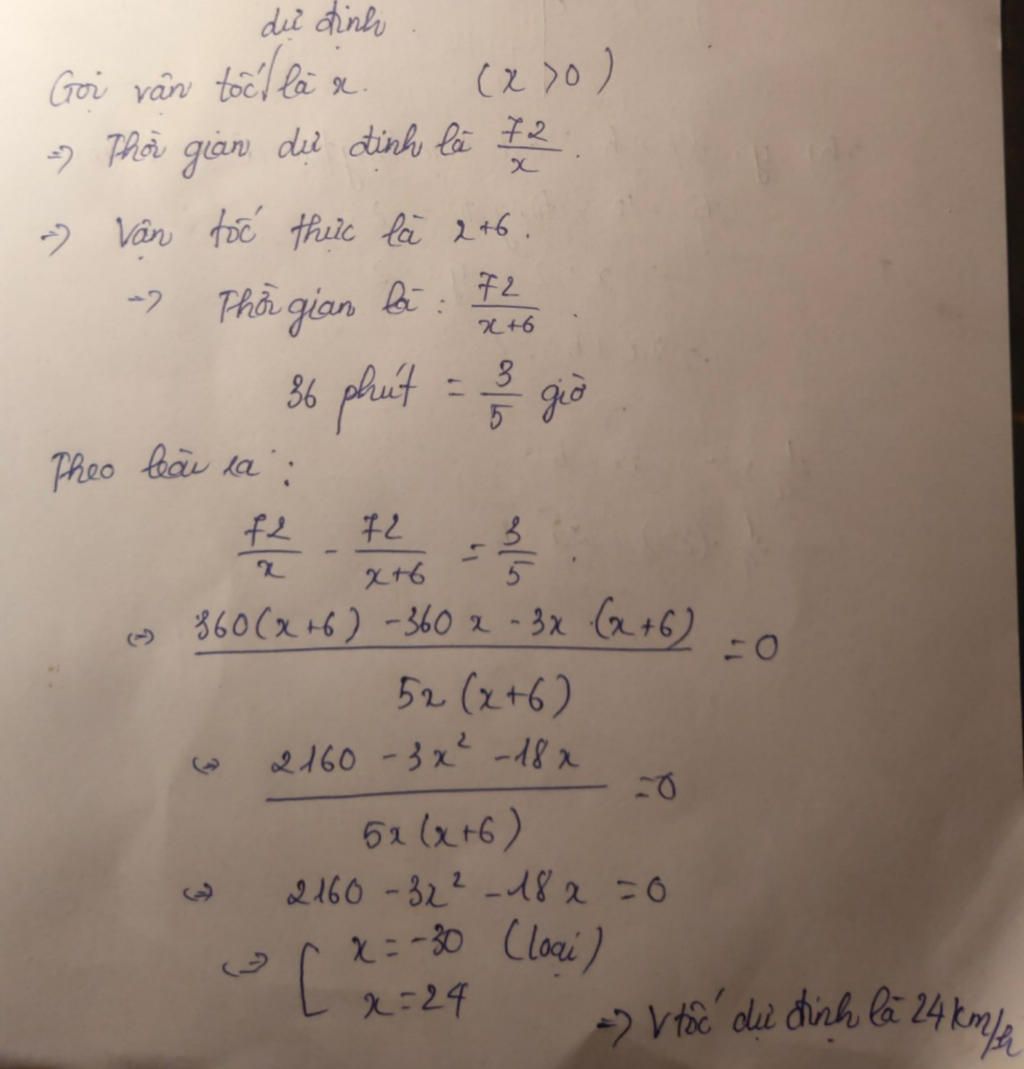 dự định.
Gọi vận tốc là x. (x > 0)
=> Thời gian dự định là 72/x.
=> Vận tốc thực là x+6.
=> Thời gian là : 72/(x+6).
36 phút = 3/5 giờ
Theo bài ra :
72/x - 72/(x+6) = 3/5.
<=> (360(x+6) - 360x - 3x.(x+6))/(5x(x+6)) = 0
<=> (2160 - 3x² - 18x)/(5x(x+6)) = 0
<=> 2160 - 3x² - 18x = 0
<=> [ x = -30 (loại)
x = 24
=> Vtốc dự định là 24km/h